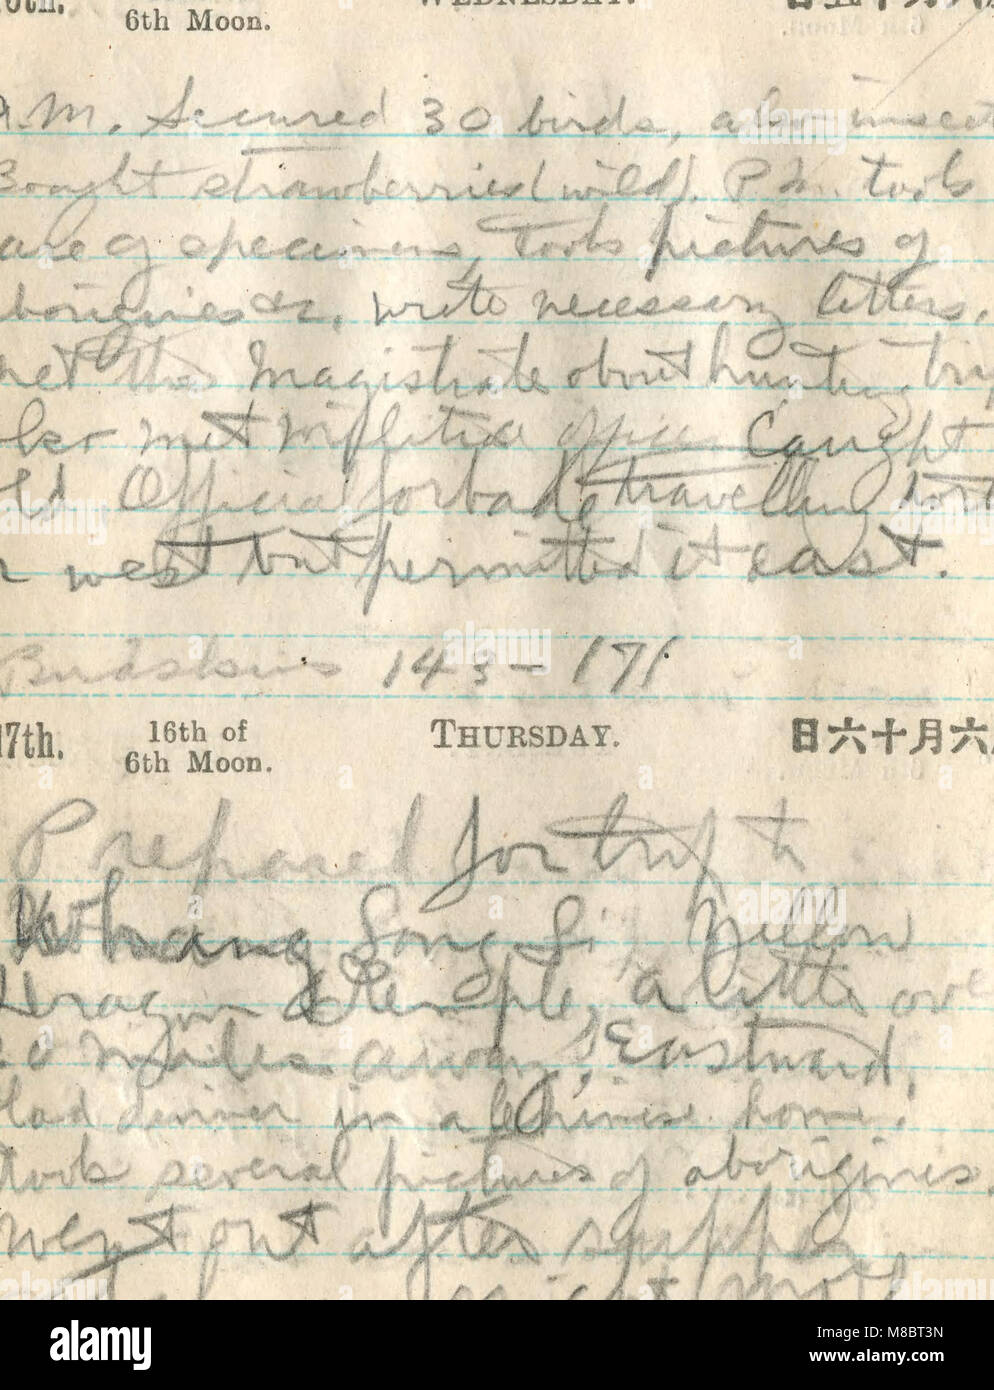 16th. 15th of WEDNESDAY.
6th Moon.
A.M. Secured 30 birds, also insects
Bought strawberries (wild). P.M. took
care of specimens, Took pictures of
aborigines &c, wrote necessary letters.
met the Magistrate about hunting trip
also met military officer Caught
cold. Official forbade travelling north
or west but permitted it east.
Birdskins 143-171
17th. 16th of THURSDAY. 日六十月六
6th Moon.
Prepared for trip to
Whang Long Si, Yellow
Dragon Temple, a little over
20 miles away, Eastward.
Had dinner in a Chinese home.
took several pictures of aborigines.
Went out after supper
night
alamy
Image ID: M8BT3N
www.alamy.com